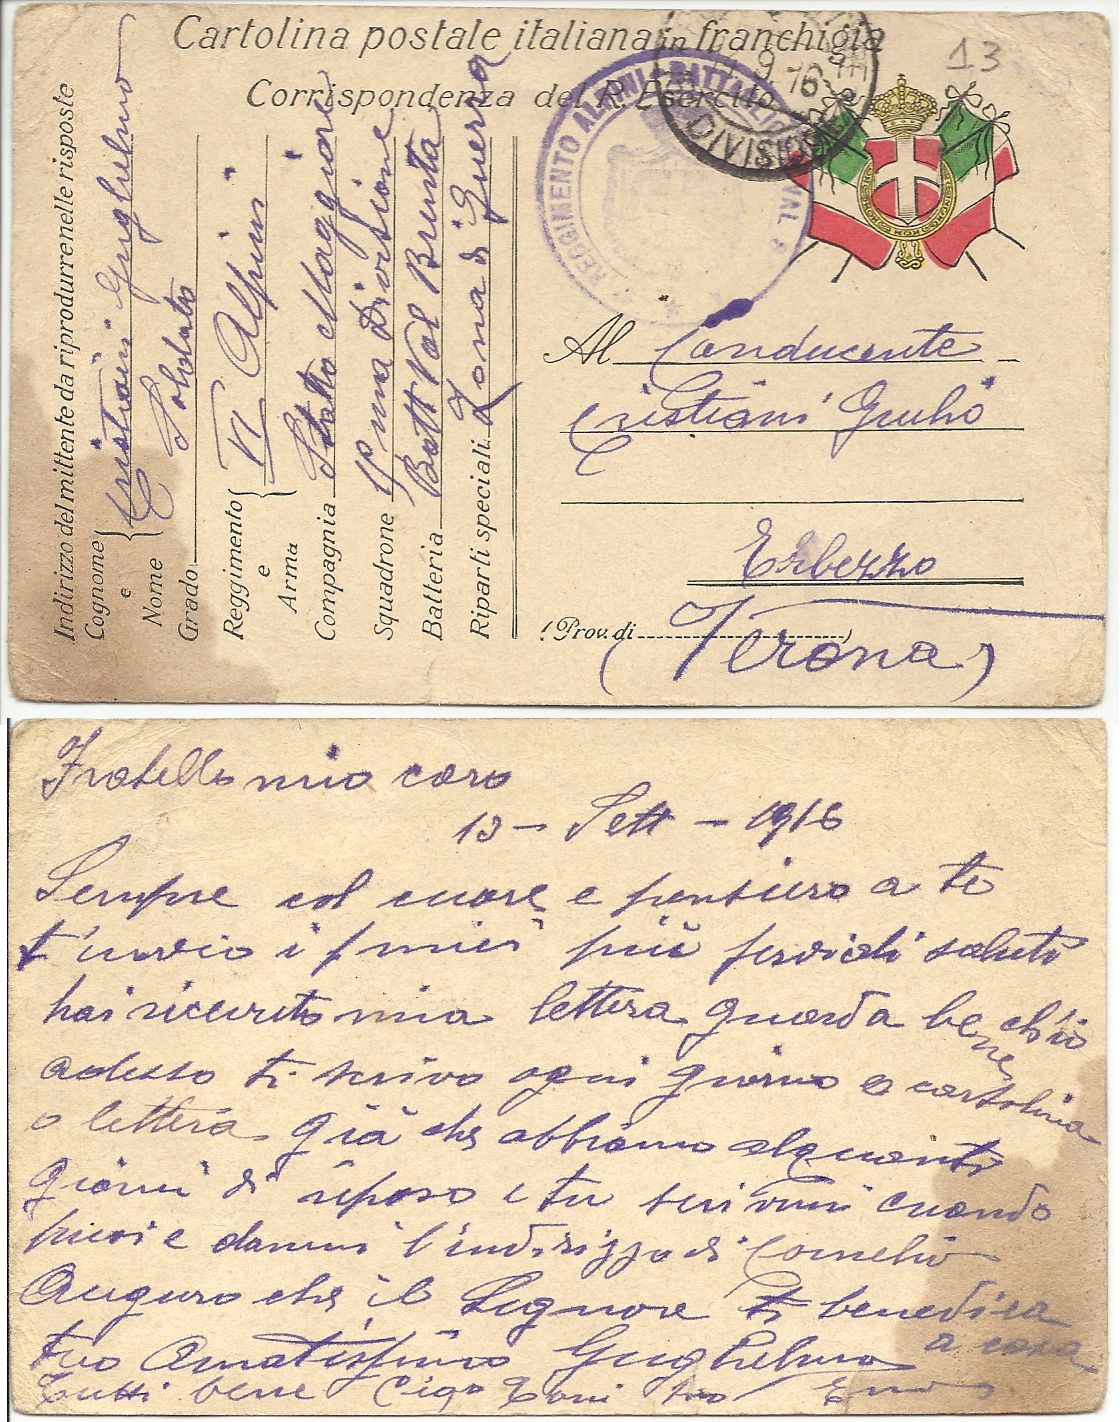 Cartolina postale italiana in franchigia
Corrispondenza del R. Esercito
13
9 16
DIVISIO
REGGIMENTO ALPINI BATTAGLIO VAL
Indirizzo del mittente da riprodurre nelle risposte
Cognome e Nome { Cristiani Guglielmo
Grado Soldato
Reggimento e Arma { VI Alpini
Compagnia Stato Maggiore
Squadrone 1ª Divisione
Batteria Batt Val Brenta
Riparti speciali Zona di Guerra
Al Conducente
Cristiani Giulio
Erbezzo
(Prov. di Verona)
Fratello mio caro
13 - Sett - 1916
Sempre col cuore e pensiero a te
t'invio i miei più fervidi saluti
hai ricevuto mia lettera guarda bene ch'io
adesso ti scrivo ogni giorno o cartolina
o lettera già che abbiamo alquanti
giorni di riposo e tu scrivimi cuando
puoi e dammi l'indirizzo di Cornelio
Auguro che il Signore ti benedica
tuo Amatissimo Guglielmo a casa
tutti bene Toni tuo